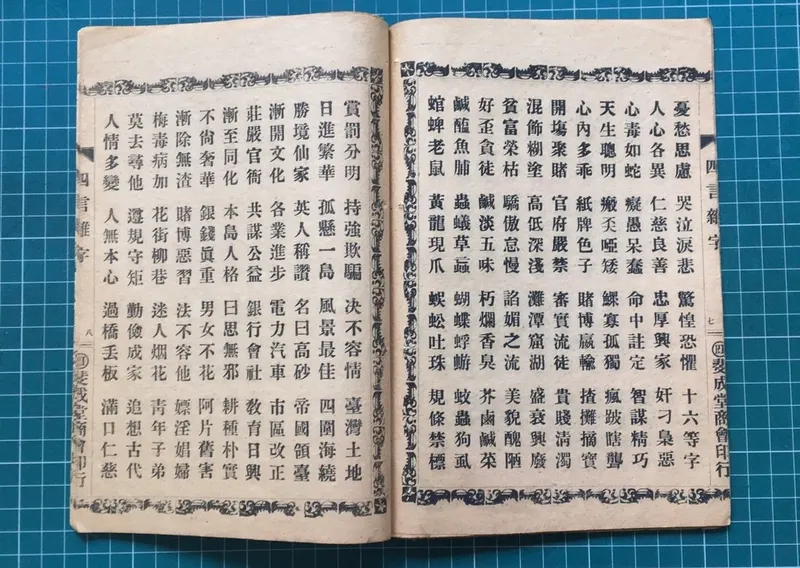 四言雜字 七 斐成堂商會印行
憂愁思慮 哭泣淚悲 驚惶恐懼 十六等字
人心各異 仁慈良善 忠厚興家 奸刁梟惡
心毒如蛇 癡愚呆蠢 命中註定 智謀精巧
天生聰明 啞矮 鰥寡孤獨 瘋跛瞎聾
心內多乖 紙牌色子 賭博贏輸 揸攤摘寶
開塲聚賭 官府嚴禁 審實流徒 貴賤清濁
混飾糊塗 高低深淺 灘潭窟湖 盛衰興廢
貧富榮枯 驕傲怠慢 諂媚之流 美貌醜陋
好歪貪徒 鹹淡五味 朽爛香臭 芥鹵鹹菜
鹹醢魚脯 蟲蟻草蝨 蝴蝶蜉蝣 蚊蟲狗虱
蜱老鼠 黃龍現爪 蜈蚣吐珠 規條禁標
賞罰分明 持強欺騙 决不容情 臺灣土地
日進繁華 孤懸一島 風景最佳 四圍海繞
勝境仙家 英人稱讚 名曰高砂 帝國領臺
漸開文化 各業進步 電力汽車 市區改正
莊嚴官衙 共謀公益 銀行會社 敎育日興
漸至同化 本島人格 曰思無邪 耕種朴實
不尙奢華 銀錢眞重 男女不花 阿片舊害
漸除無渣 賭博惡習 法不容他 嫖淫娼婦
梅毒病加 花街柳巷 迷人烟花 青年子弟
莫去尋他 遵規守矩 勤儉成家 追想古代
人情多變 人無本心 過橋丢板 滿口仁慈
四言雜字 八 斐成堂商會印行